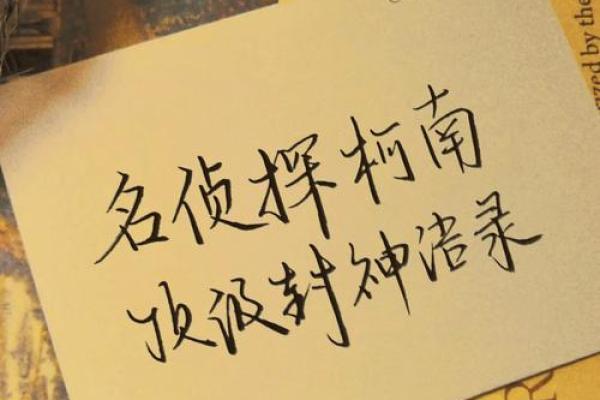 名侦探柯南
顶级封神语录
by the